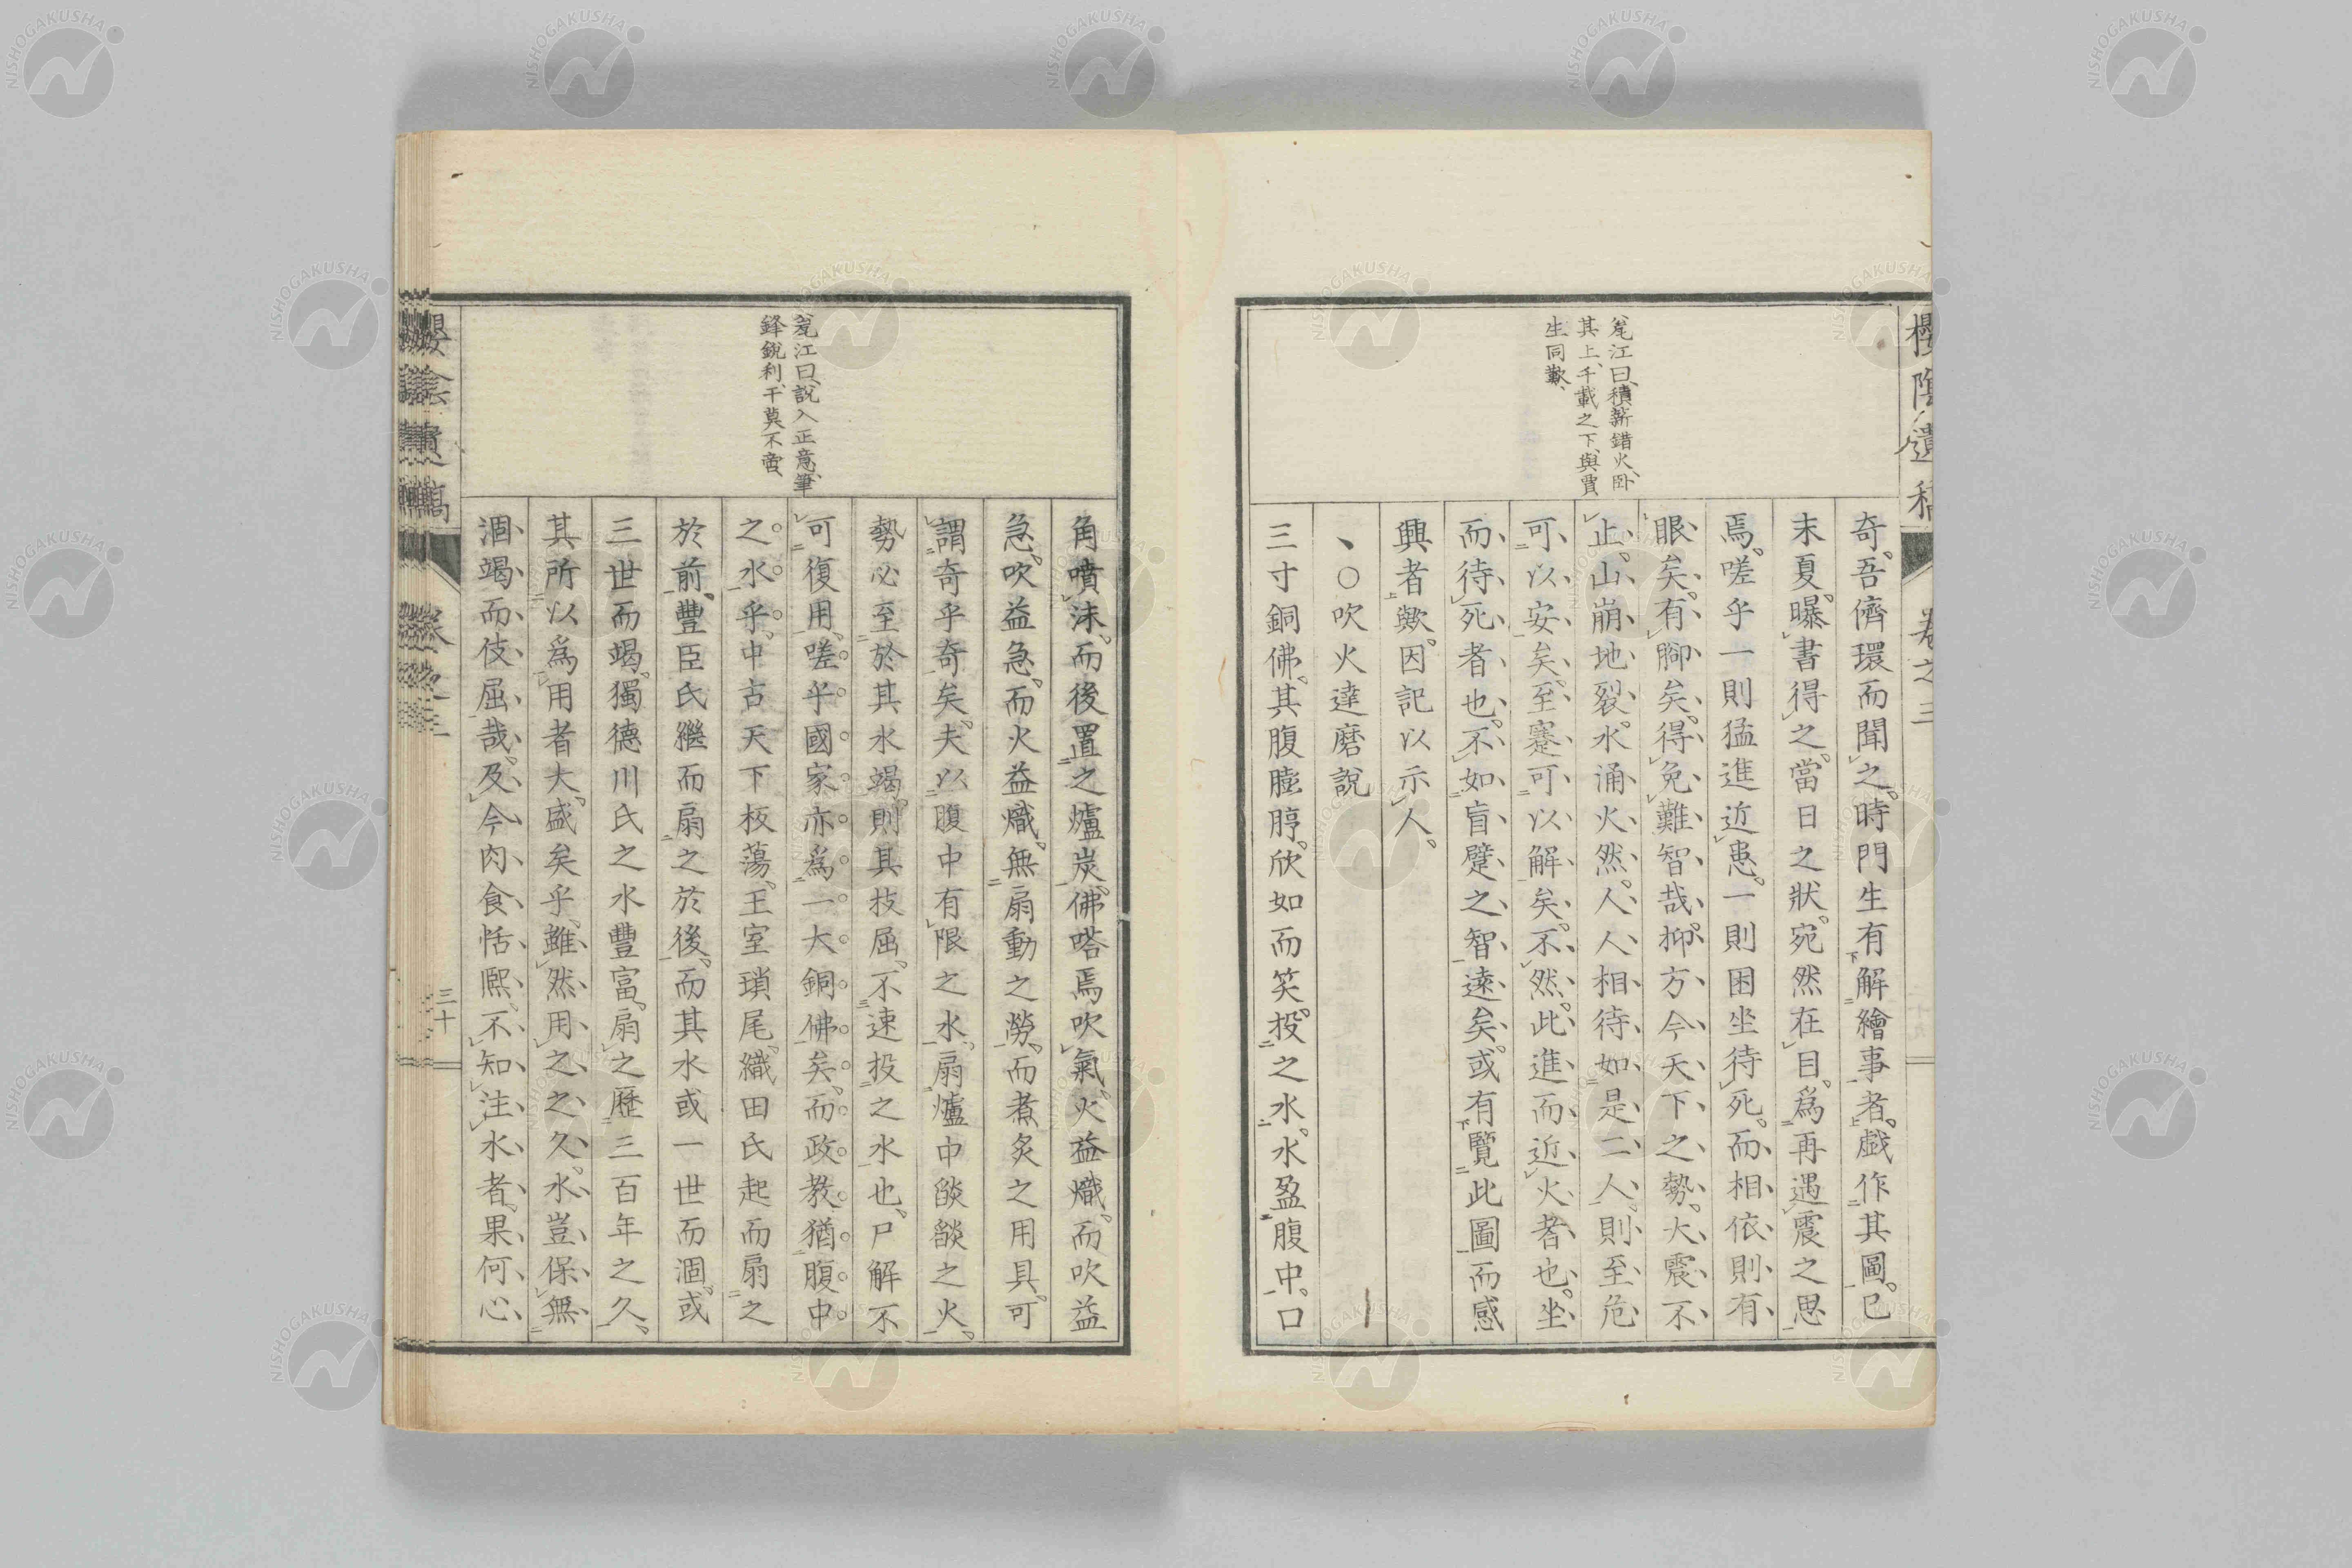 櫻陰遺稿
卷之三
奇吾儕環而聞之時門生有解繪事者戲作其圖已
末夏曝書得之當日之狀宛然在目爲再遇震之思
焉嗟乎一則猛進近患一則困坐待死而相依則有
眼矣有腳矣得免難智哉抑方今天下之勢大震不
止山崩地裂水涌火然人人相待如是二人則至危
可以安矣至蹇可以解矣不然此進而近火者也坐
而待死者也不如盲躄之智遠矣或有覽此圖而感
興者歟因記以示人
、○吹火達磨說
三寸銅佛其腹膨脝欣如而笑投之水水盈腹中口
瓮江曰積薪錯火臥
其上千載之下與賈
生同歎
角噴沫而後置之爐炭佛嗒焉吹氣火益熾而吹益
急吹益急而火益熾無扇動之勞而煮炙之用具可
謂奇乎奇矣夫以腹中有限之水扇爐中燄燄之火
勢必至於其水竭則其技屈不速投之水也尸解不
可復用嗟乎國家亦爲一大銅佛矣而政教猶腹中
之水乎中古天下板蕩王室瑣尾織田氏起而扇之
於前豐臣氏繼而扇之於後而其水或一世而涸或
三世而竭獨德川氏之水豐富扇之歷三百年之久
其所以爲用者大盛矣乎雖然用之之久水豈保無
涸竭而伎屈哉及今肉食恬熙不知注水者果何心
瓮江曰說入正意筆
鋒銳利干莫不啻
櫻陰遺稿
卷之三
三十
NISHOGAKUSHA